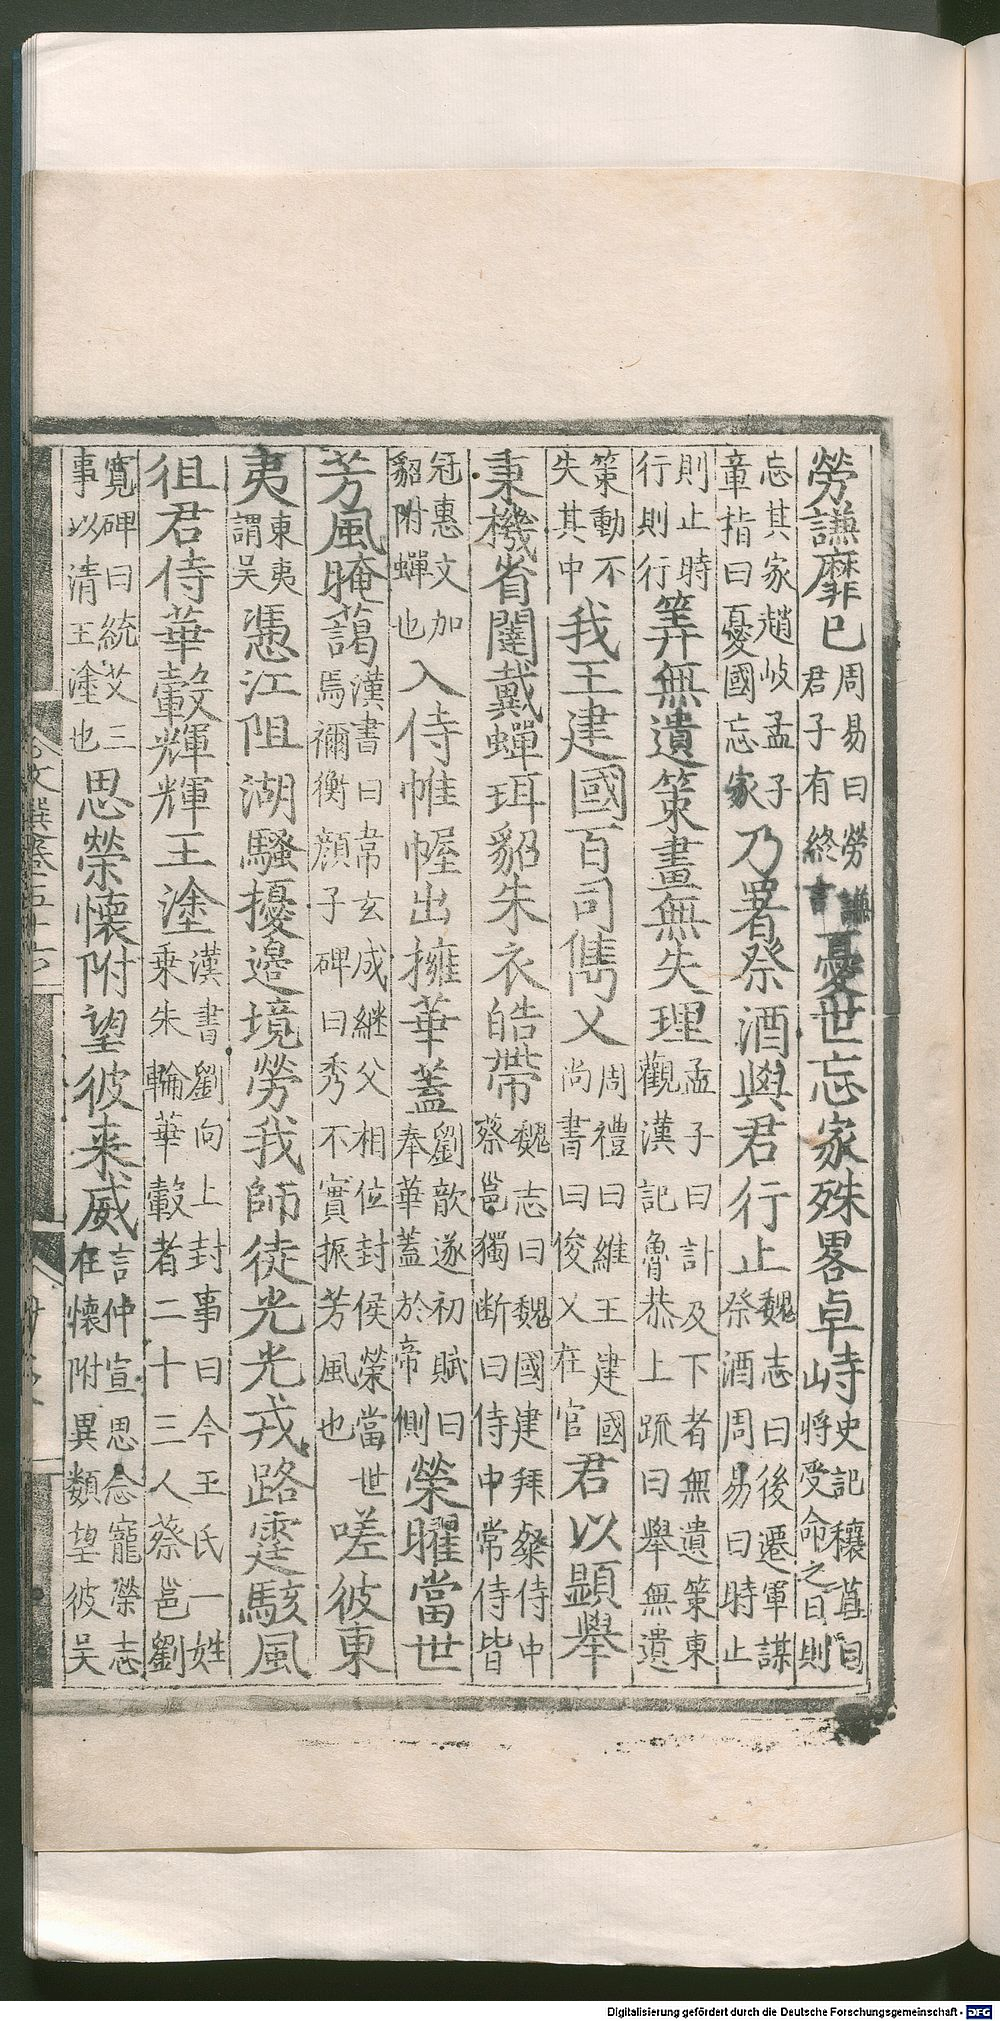 勞謙靡已周易曰勞謙君子有終吉憂世忘家殊畧卓峙史記穰苴曰將受命之日則
忘其家趙岐孟子章指曰憂國忘家乃署祭酒與君行止魏志曰後遷軍謀祭酒周易曰時止
則止時行則行筭無遺策畫無失理孟子曰計及下者無遺策東觀漢記魯恭上疏曰舉無遺
策動不失其中我王建國百司儁乂周禮曰維王建國尚書曰俊乂在官君以顯舉
秉機省闥戴蟬珥貂朱衣皓帶魏志曰魏國建拜粲侍中蔡邕獨断曰侍中常侍皆
冠惠文加貂附蟬也入侍帷幄出擁華蓋劉歆遂初賦曰奉華蓋於帝側榮曜當世
芳風晻藹漢書曰韋玄成継父相位封侯榮當世焉禰衡顔子碑曰秀不實振芳風也嗟彼東
夷東夷謂吴憑江阻湖騷擾邊境勞我師徒光光戎路霆駭風
徂君侍華轂輝輝王塗漢書劉向上封事曰今王氏一姓乗朱輪華轂者二十三人蔡邕劉
寛碑曰統艾三事以清王塗也思榮懷附望彼来威言仲宣思念寵榮志在懷附異類望彼吴
Digitalisierung gefördert durch die Deutsche Forschungsgemeinschaft - DFG